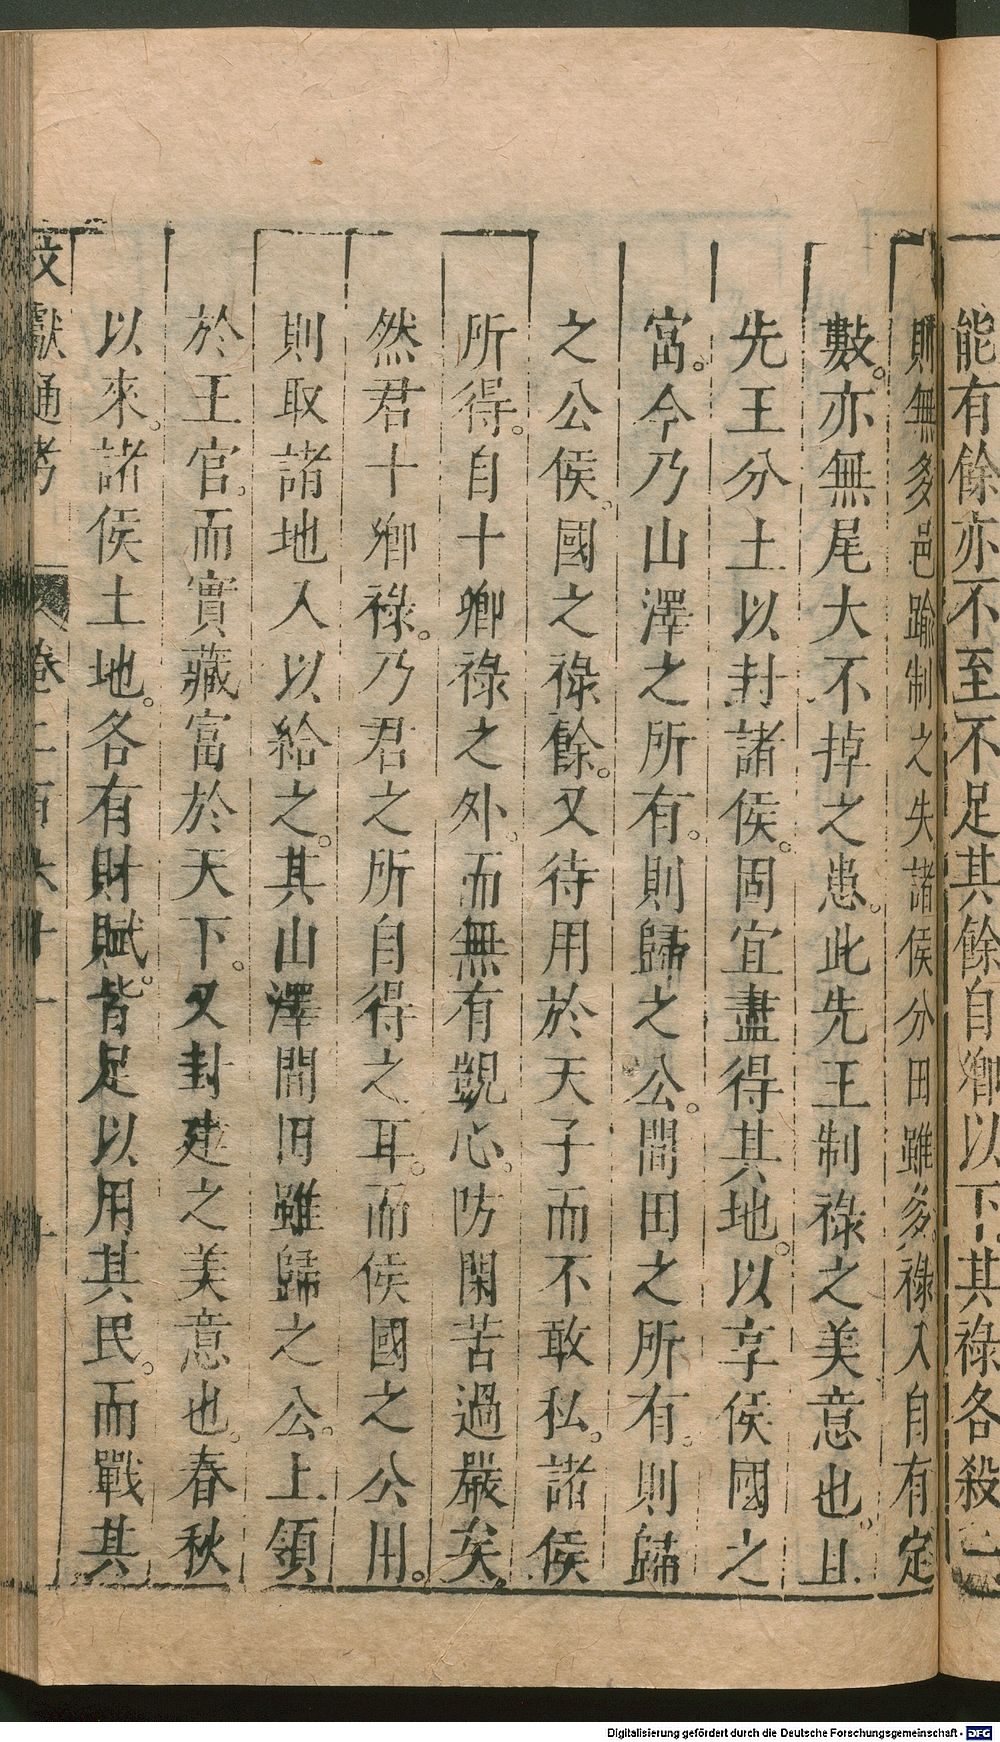 能有餘亦不至不足其餘自卿以下其祿各殺
則無多邑踰制之失諸侯分田雖多祿入自有定
數。亦無尾大不掉之患。此先王制祿之美意也。且
先王分土以封諸侯。固宜盡得其地。以享侯國之
富。今乃山澤之所有。則歸之公。間田之所有。則歸
之公侯。國之祿餘。又待用於天子而不敢私。諸侯
所得。自十卿祿之外。而無有覬心。防閑苦過嚴矣。
然君十卿祿。乃君之所自得之耳。而侯國之公用。
則取諸地入以給之。其山澤間田雖歸之公。上領
於王官。而實藏富於天下。又封建之美意也。春秋
以來。諸侯土地。各有財賦。皆足以用其民。而戰其
文獻通考 卷二百六十一 十
Digitalisierung gefördert durch die Deutsche Forschungsgemeinschaft - DFG